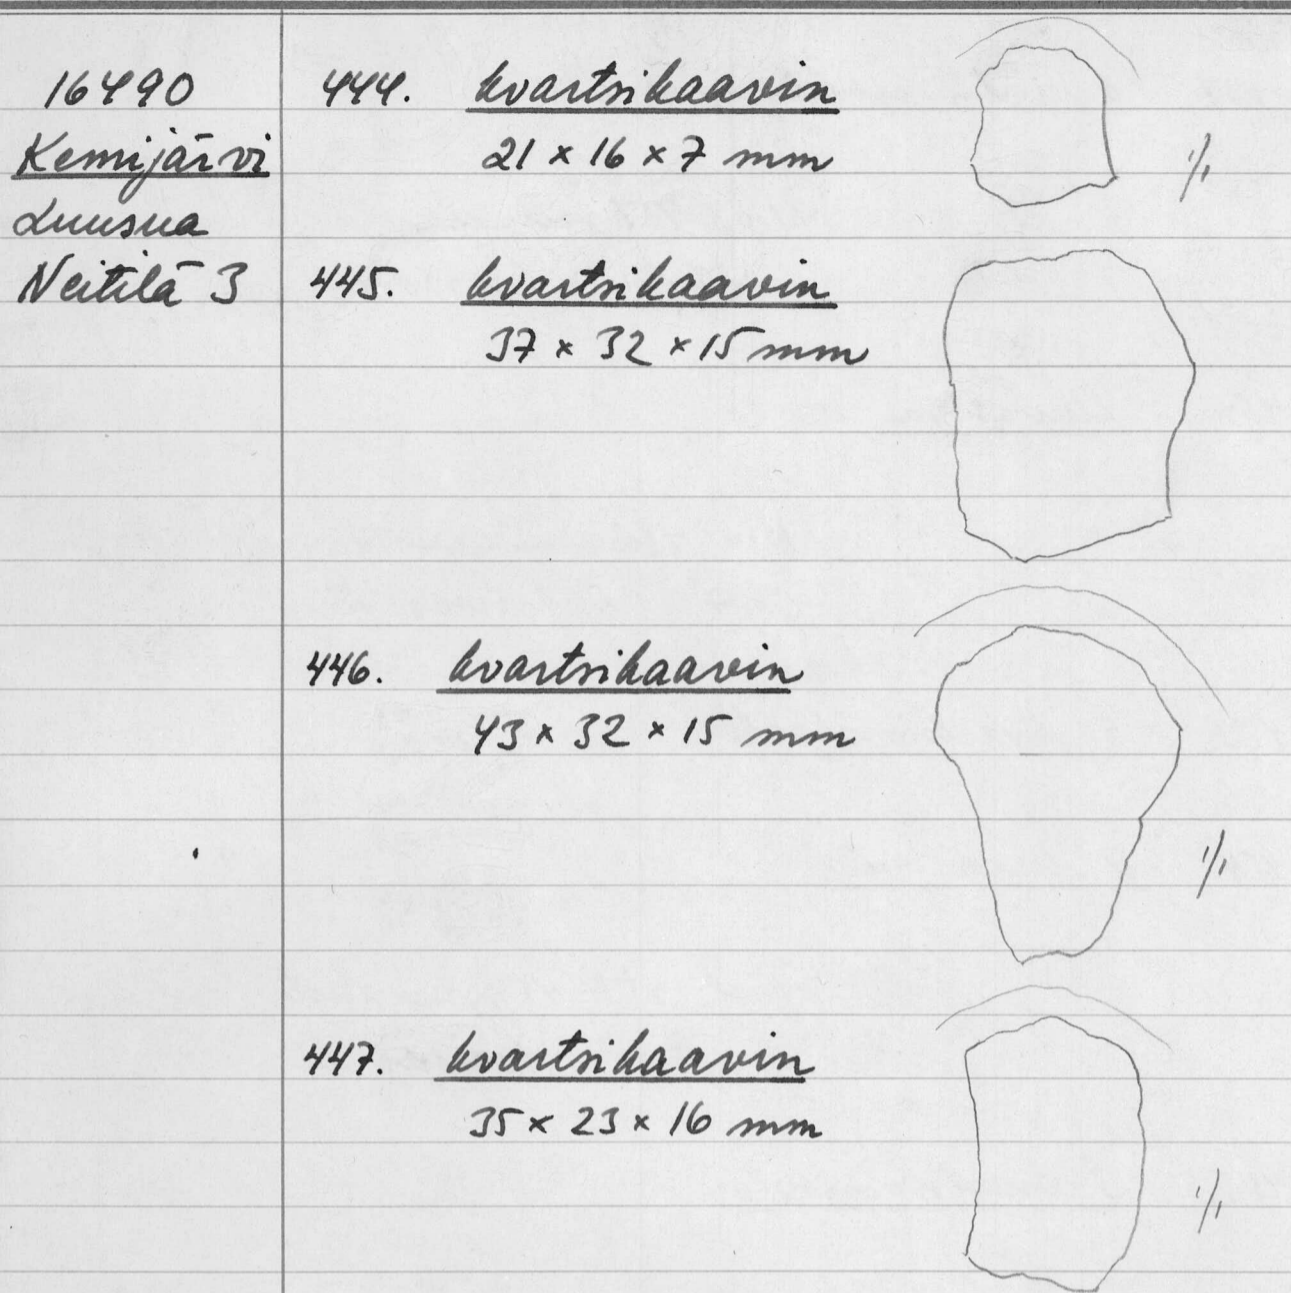 16490
Kemijärvi
Luusua
Neitilä 3
444. kvartsikaavin
21 × 16 × 7 mm
1/1
445. kvartsikaavin
37 × 32 × 15 mm
446. kvartsikaavin
43 × 32 × 15 mm
1/1
447. kvartsikaavin
35 × 23 × 16 mm
1/1